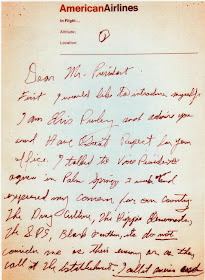 AmericanAirlines
In Flight...
Altitude;
Location;
Dear Mr. President
First I would like to introduce myself.
I am Elvis Presley and admire you
and Have Great Respect for your
office. I talked to Vice President
Agnew in Palm Springs 3 weeks and
expressed my concern for our country.
The Drug Culture, The Hippie Elements,
The SDS, Black Panthers, etc do not
consider me as their enemy or as they
call it The Establishment. I call it America and